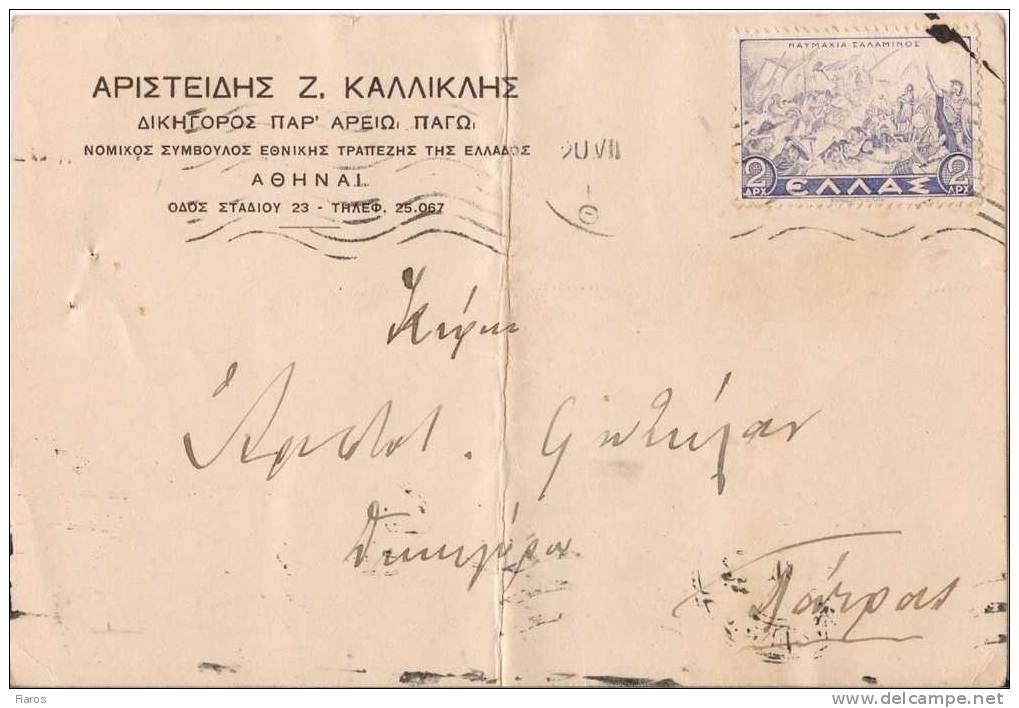 ΑΡΙΣΤΕΙΔΗΣ Ζ. ΚΑΛΛΙΚΛΗΣ
ΔΙΚΗΓΟΡΟΣ ΠΑΡ' ΑΡΕΙΩι ΠΑΓΩι
ΝΟΜΙΚΟΣ ΣΥΜΒΟΥΛΟΣ ΕΘΝΙΚΗΣ ΤΡΑΠΕΖΗΣ ΤΗΣ ΕΛΛΑΔΟΣ
ΑΘΗΝΑΙ
ΟΔΟΣ ΣΤΑΔΙΟΥ 23 - ΤΗΛΕΦ. 25.067
ΝΑΥΜΑΧΙΑ ΣΑΛΑΜΙΝΟΣ
2 ΔΡΧ ΕΛΛΑΣ 2 ΔΡΧ
20.VII
Κύριον
Ἀριστοτ.
Δικηγόρον
Πάτρας
Raros
www.delcampe.net